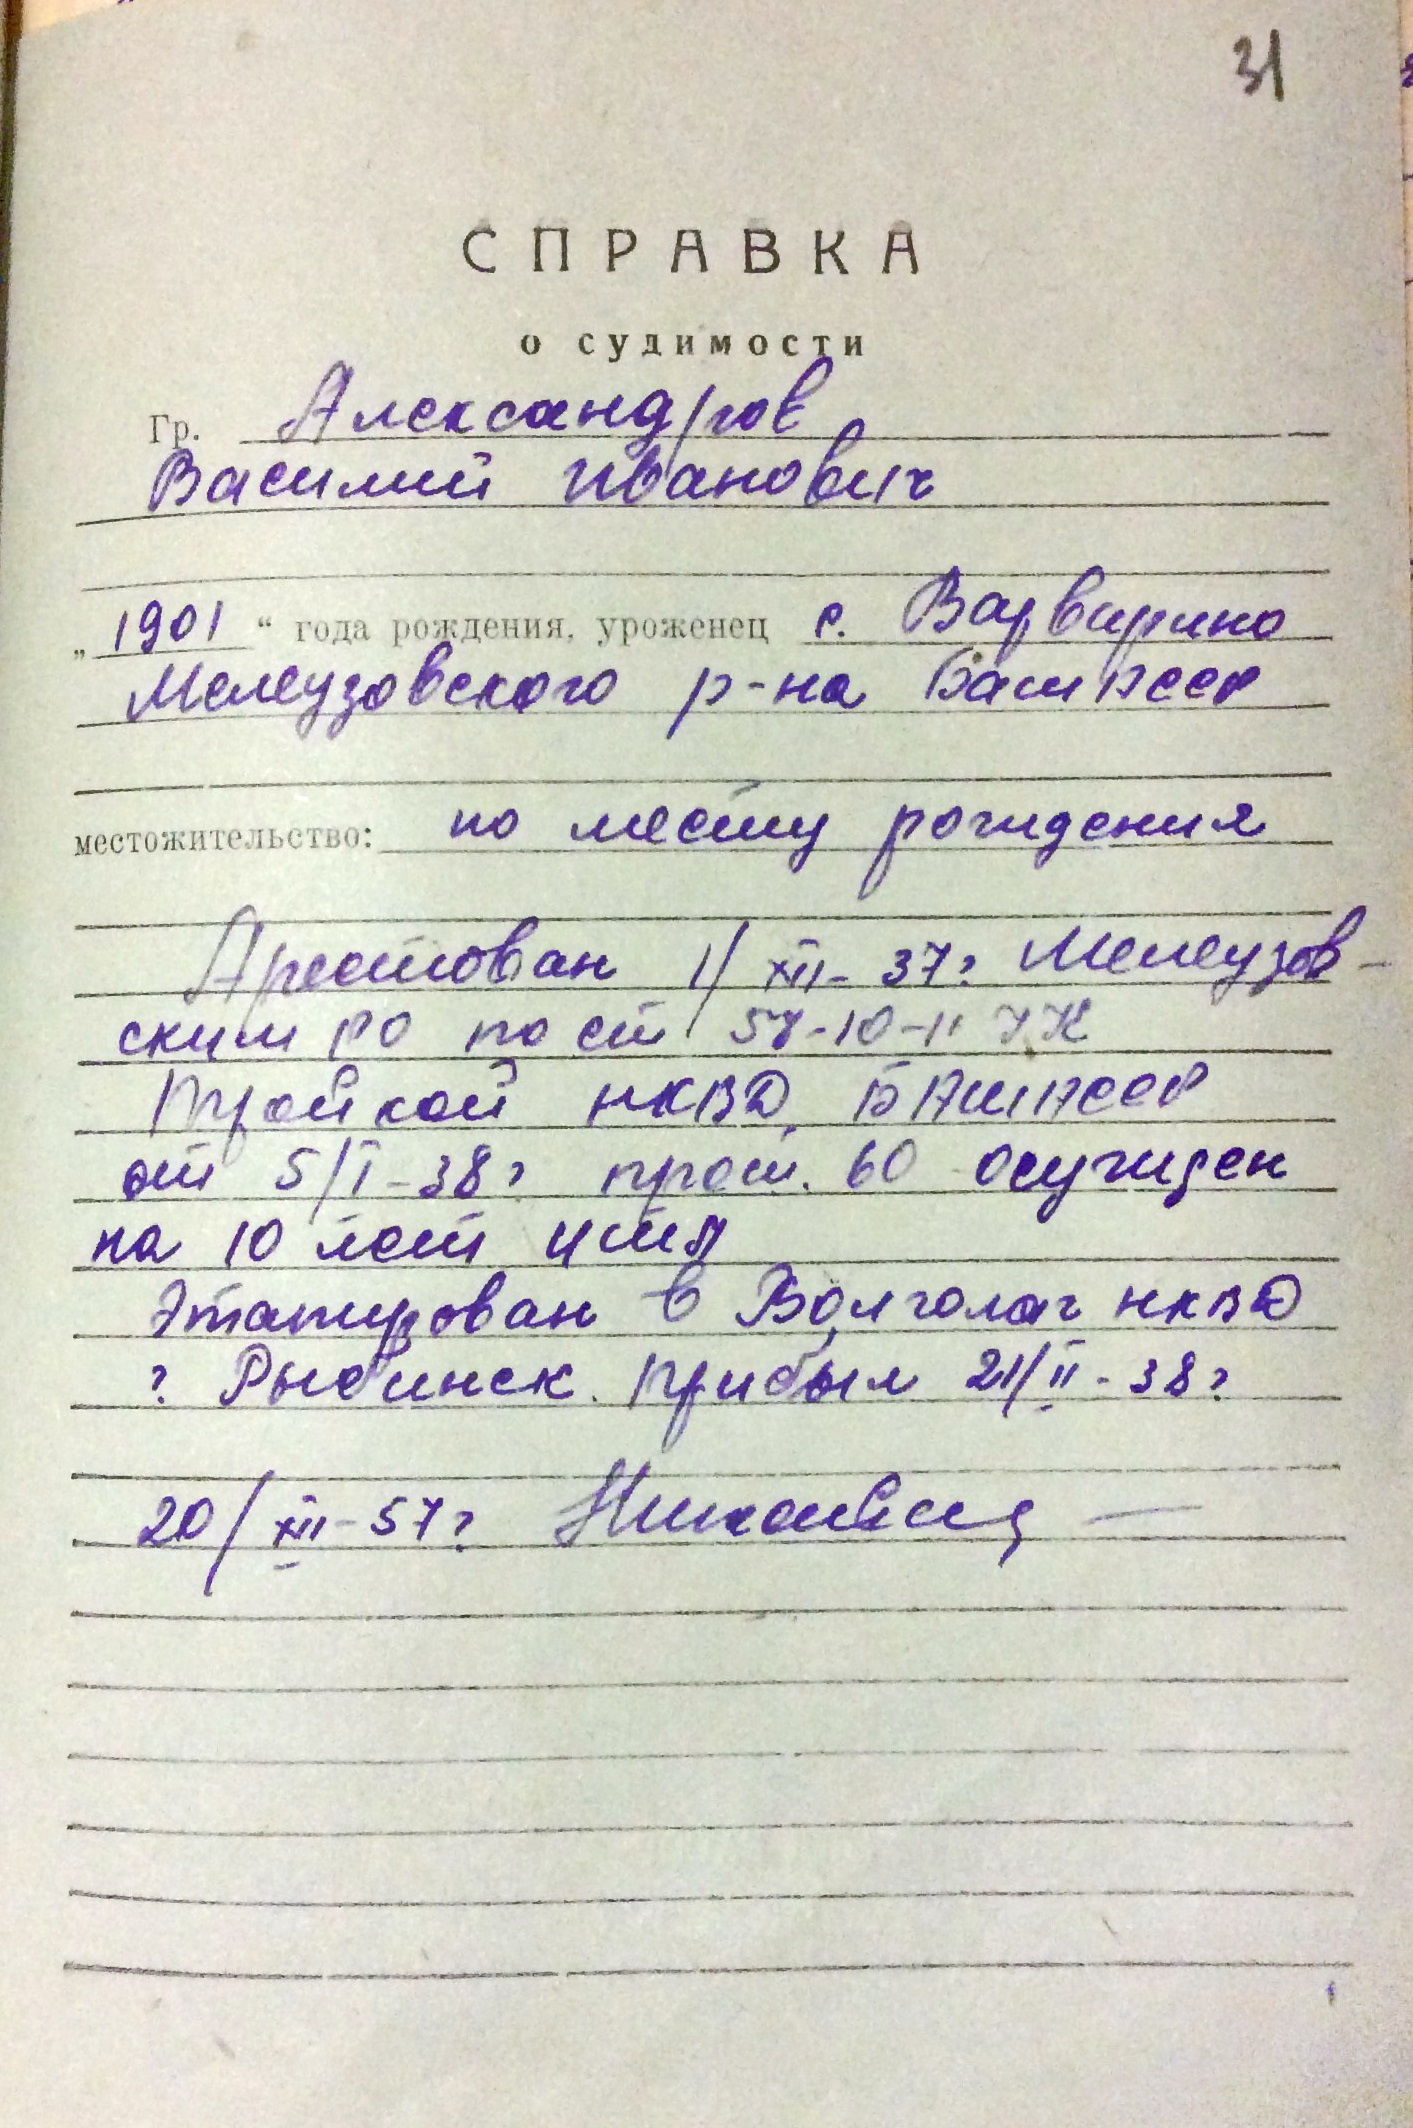 31
СПРАВКА
о судимости
Гр. Александров
Василий Иванович
„1901“ года рождения, уроженец с. Варварино
Мелеузовского р-на БашАССР
местожительство: по месту рождения
Арестован 1/XII-37г Мелеузов-
ским РО по ст 58-10-11 УК
Тройкой НКВД БАШАССР
от 5/I-38г прот. 60 осужден
на 10 лет ИТЛ
Этапирован в Волголаг НКВД
г Рыбинск. Прибыл 21/II-38г
20/XII-57г